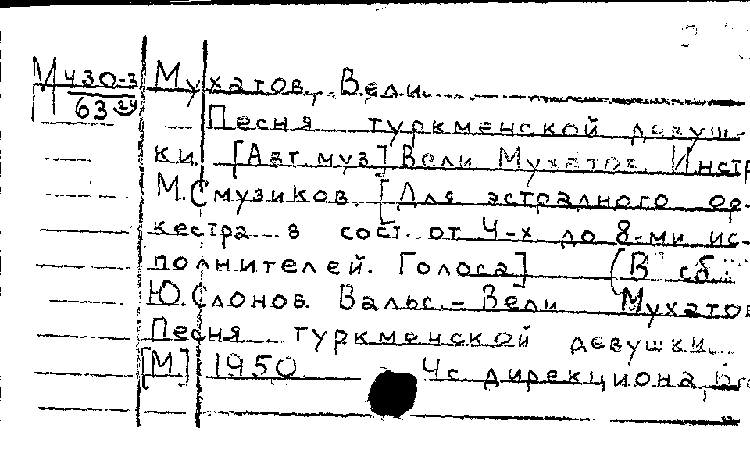 М 430-3 Мухатов, Вели.
63 Песня туркменской девуш-
ки. [Авт. муз.] Вели Мухатов. Инстр
М. Смузиков. [Для эстрадного ор-
кестра в сост. от 4-х до 8-ми ис-
полнителей. Голоса] (В сб.:
Ю. Слонов. Вальс. – Вели Мухатов
Песня туркменской девушки.
[М] 1950 4с дирекциона,